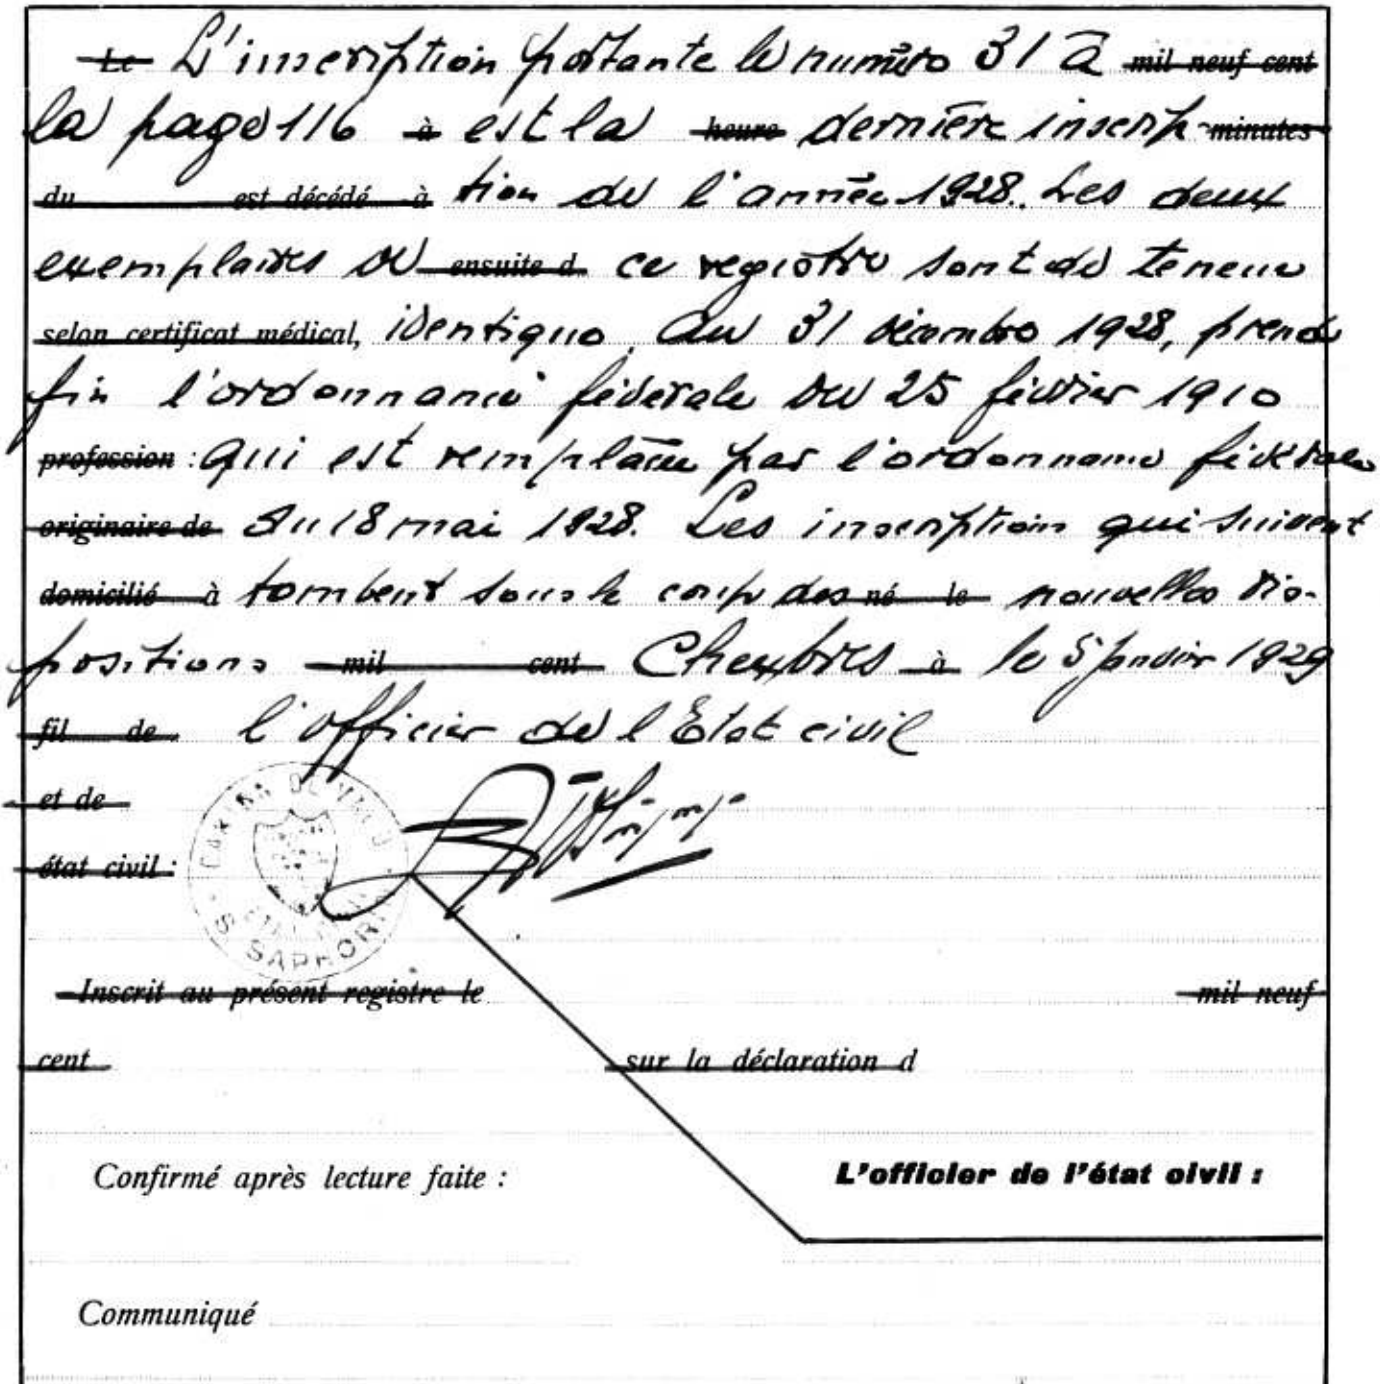 Le L'inscription portante le numéro 31 à mil neuf cent
la page 116 à est la heure dernière inscrip- minutes
du est décédé à tion de l'année 1928. Les deux
exemplaires de ensuite d ce registre sont de teneur
selon certificat médical, identique. Au 31 décembre 1928, prend
fin l'ordonnance fédérale du 25 février 1910
profession : qui est remplacée par l'ordonnance fédérale
originaire de du 18 mai 1928. Les inscription qui suivent
domicilié à tombent sous le coup des né le nouvelles dis-
positions mil cent Chexbres à le 5 janvier 1929
fil de l'officier de l'Etat civil
et de
état civil :
CANTON DE VAUD
ST SAPHORIN
Inscrit au présent registre le mil neuf
cent sur la déclaration d
Confirmé après lecture faite : L'officier de l'état civil :
Communiqué